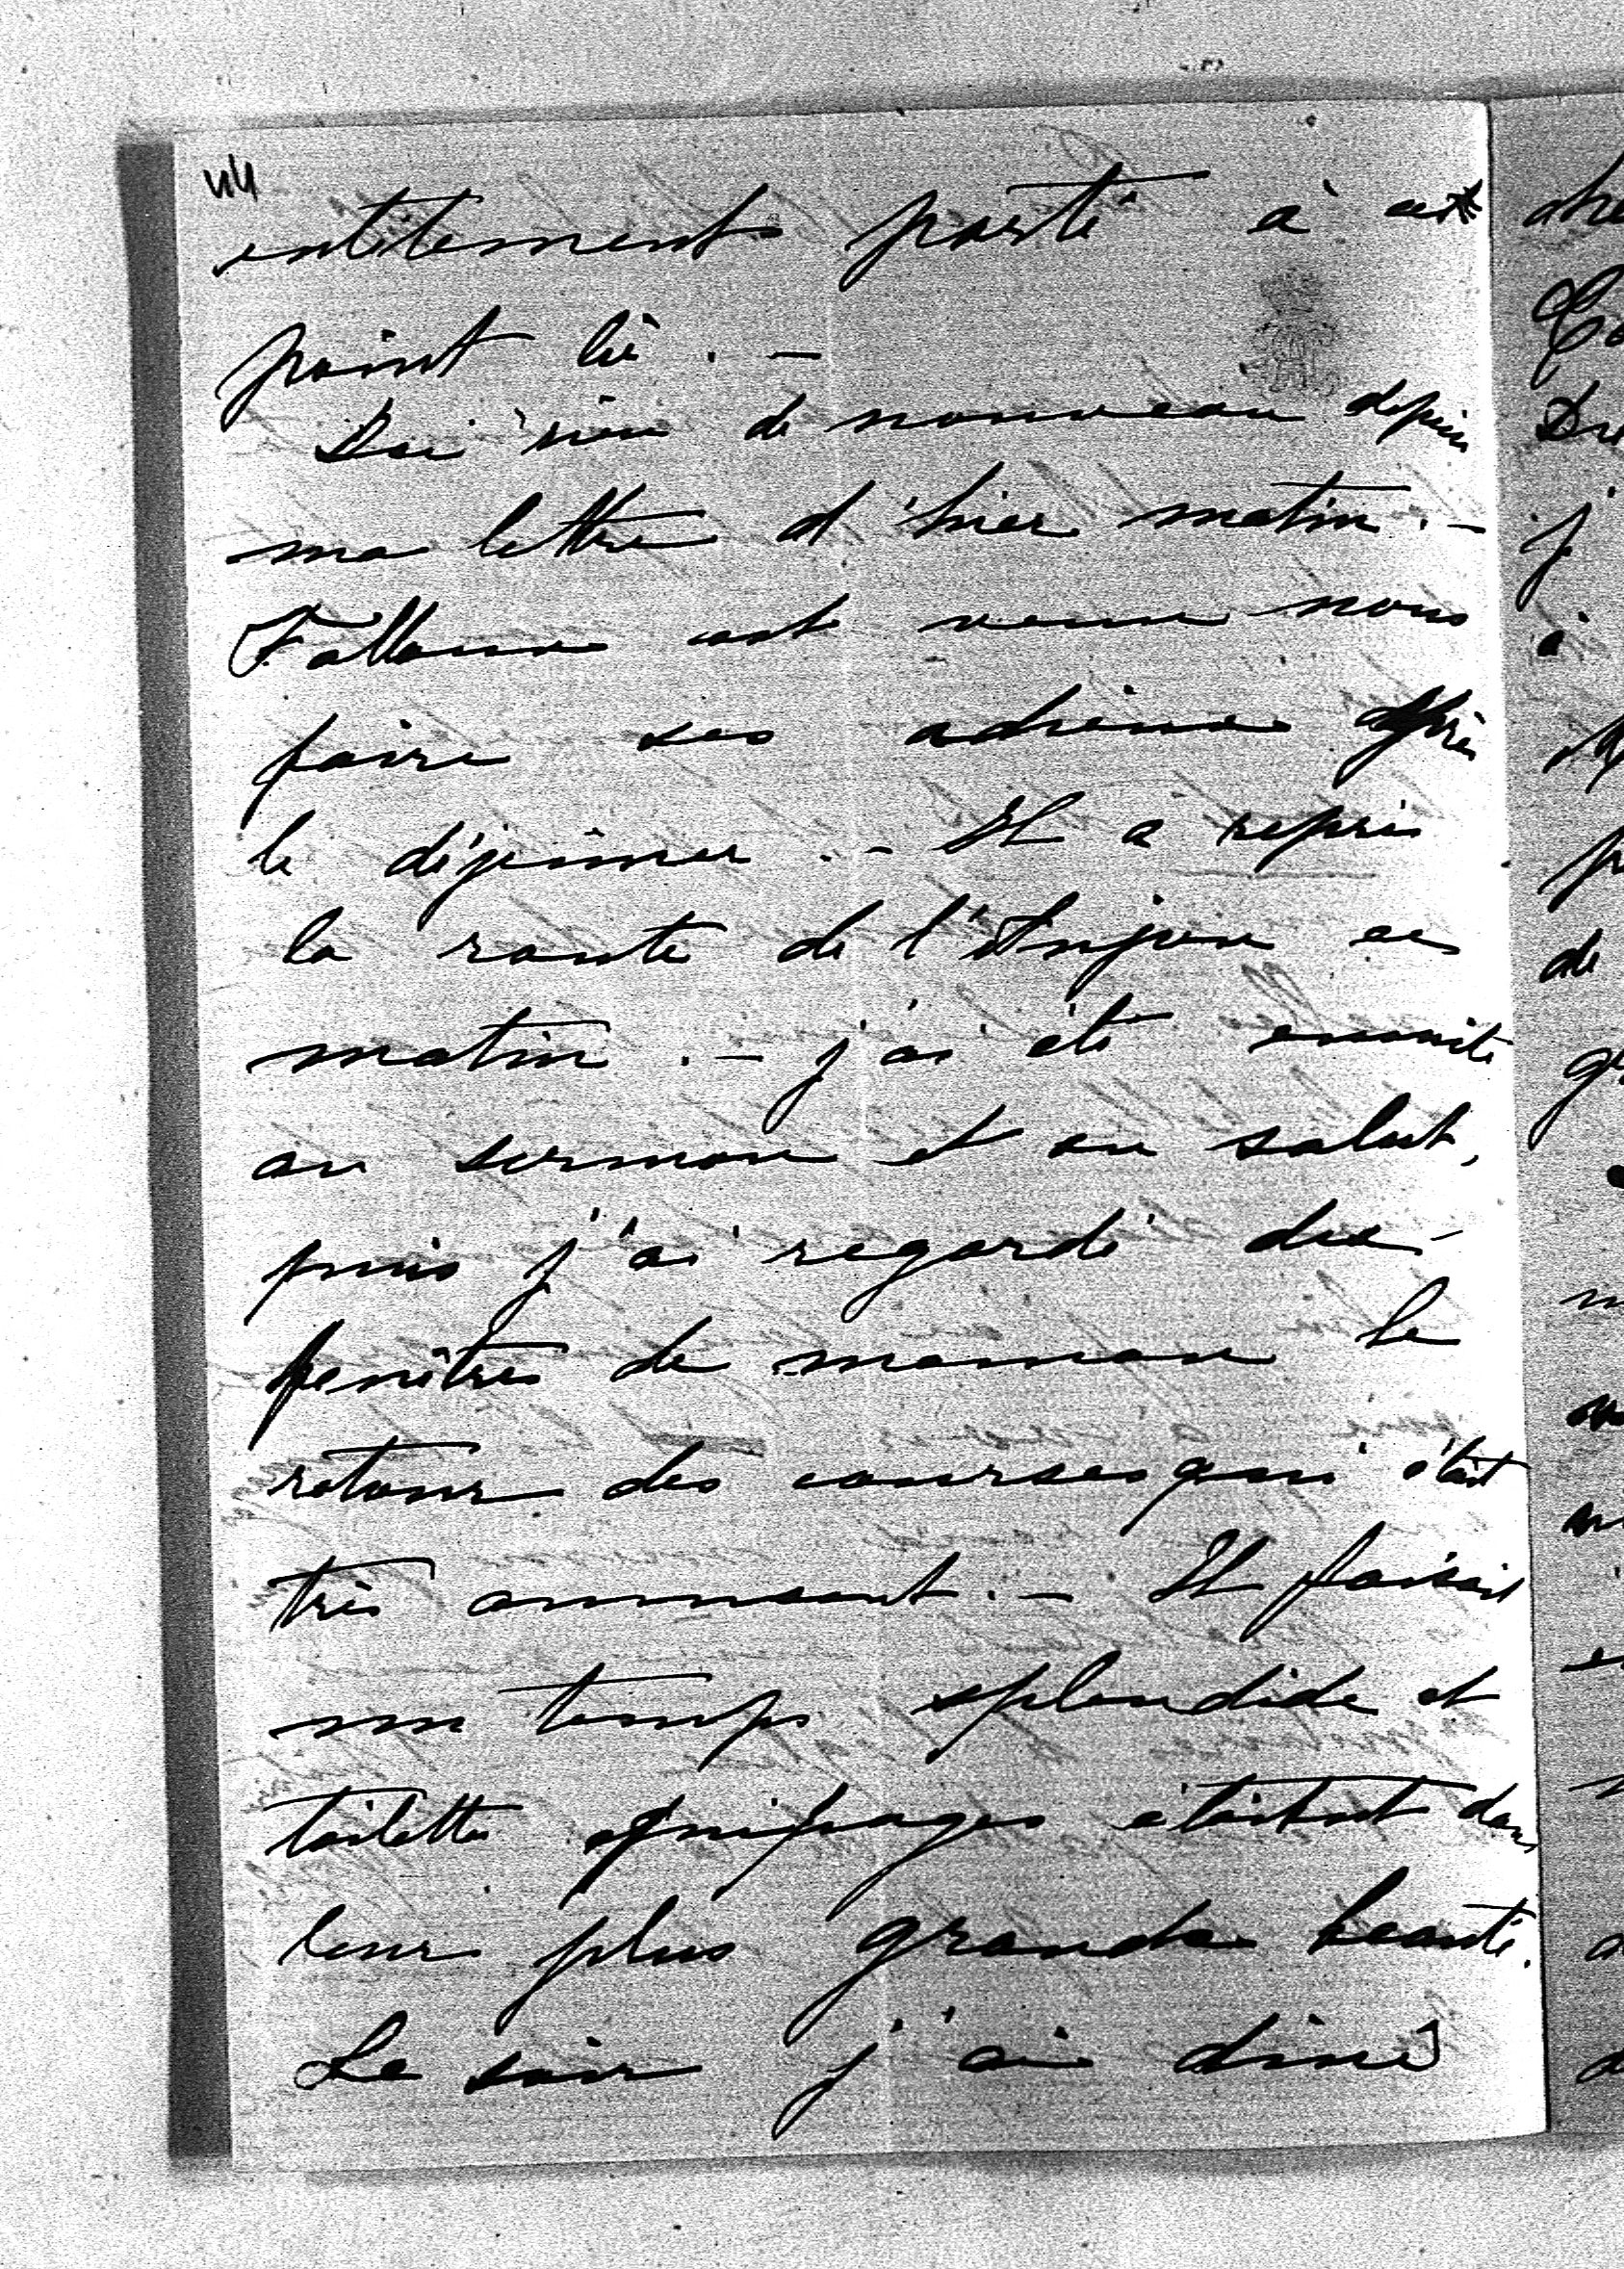 entêtement porté à ce
point là. —
Ici rien de nouveau depuis
ma lettre d'hier matin. —
Falloux est venu nous
faire ses adieux après
le déjeuner. — Il a repris
la route de l'Anjou ce
matin. — j'ai été ensuite
au sermon et au salut,
puis j'ai regardé des
fenêtres de maman le
retour des courses qui était
très amusant. — Il faisait
un temps splendide et
toilettes équipages étaient dans
leur plus grande beauté.
Le soir j'ai dîné